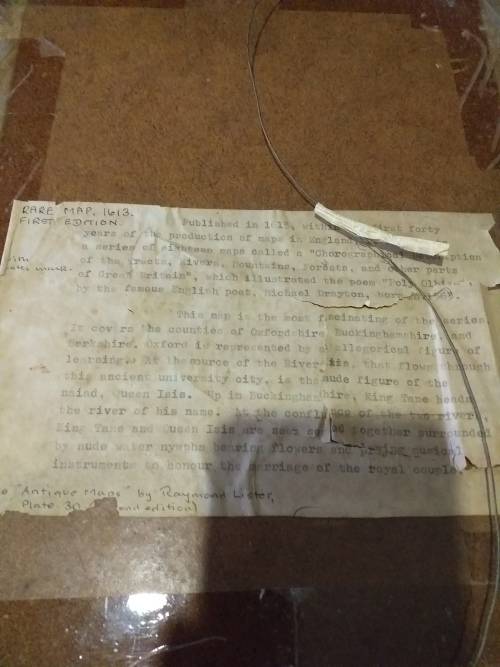 RARE MAP, 1613.
FIRST EDITION.
Published in 1613, within first forty
years of the production of maps in England
a series of sixteen maps called a "Chorographical
of the tracts, rivers, Mountains, Forests, and other parts
of Great Britain", which illustrated the poem "Poly Olbion",
by the famous English poet, Michael Drayton, born
This map is the most fascinating of the series.
It covers the counties of Oxfordshire, Buckinghamshire, and
Berkshire. Oxford is represented by allegorical figure of
learning. At the source of the River Isis, that flows through
this ancient university city, is the nude figure of the
naiad, Queen Isis. Up in Buckinghamshire, King Tame heads
the river of his name. At the confluence of the two rivers,
King Tame and Queen Isis are seen together surrounded
by nude water nymphs bearing flowers and musical
instruments to honour the marriage of the royal couple
"Antique Maps" by Raymond Lister,
Plate 30 edition)